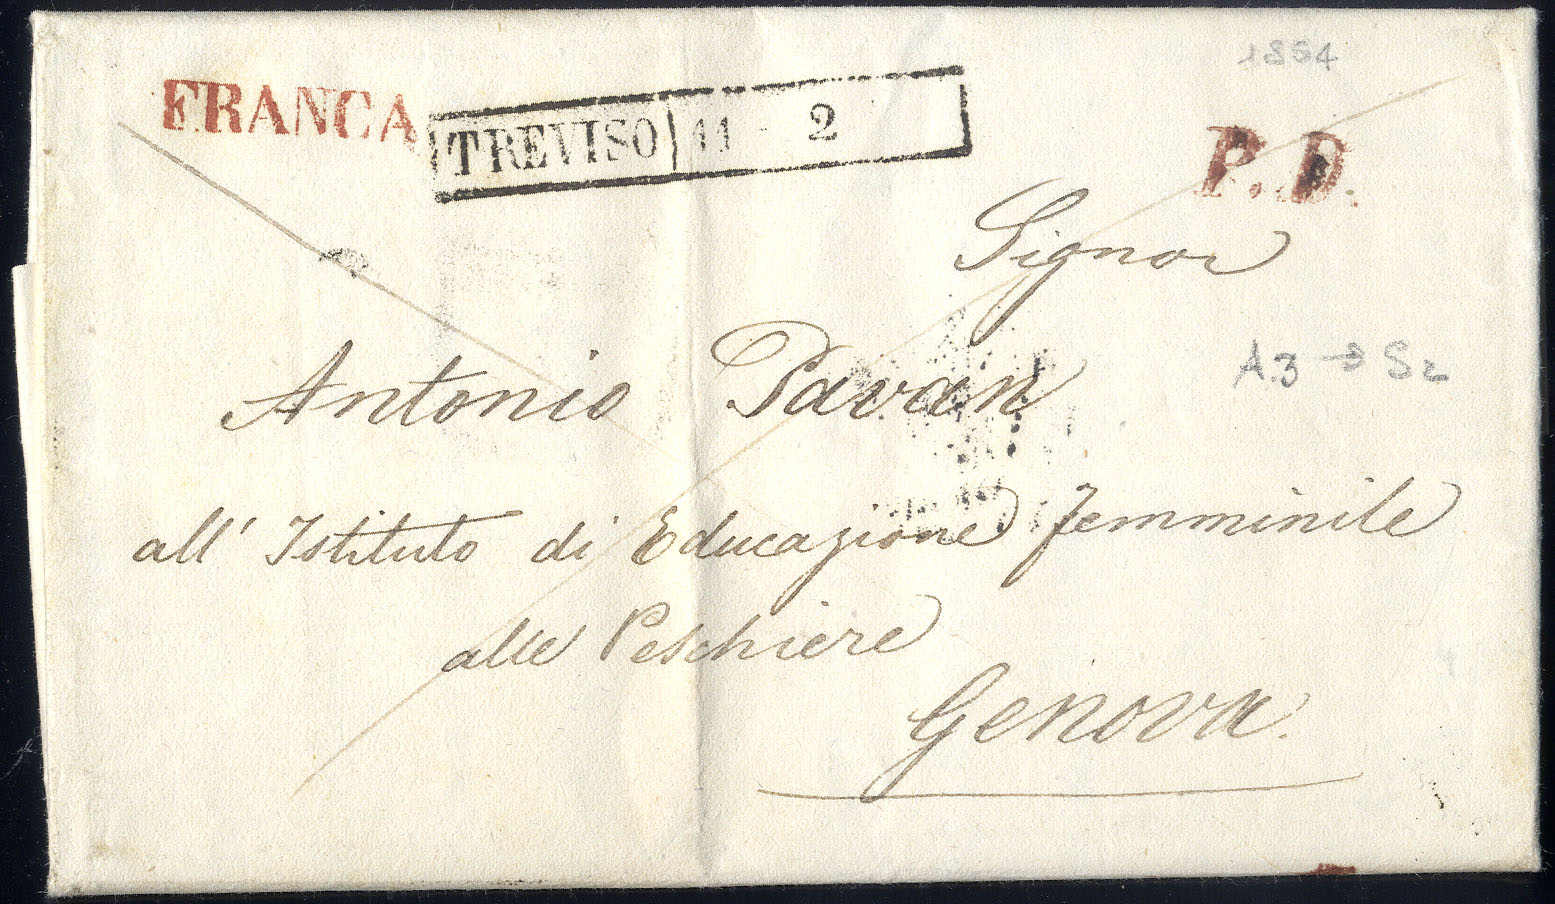 1854
FRANCA
TREVISO 11 - 2
P. D.
Signor
Antonio Pavan
A3 → S2
all' Istituto di Educazione femminile
alle Peschiere
Genova.